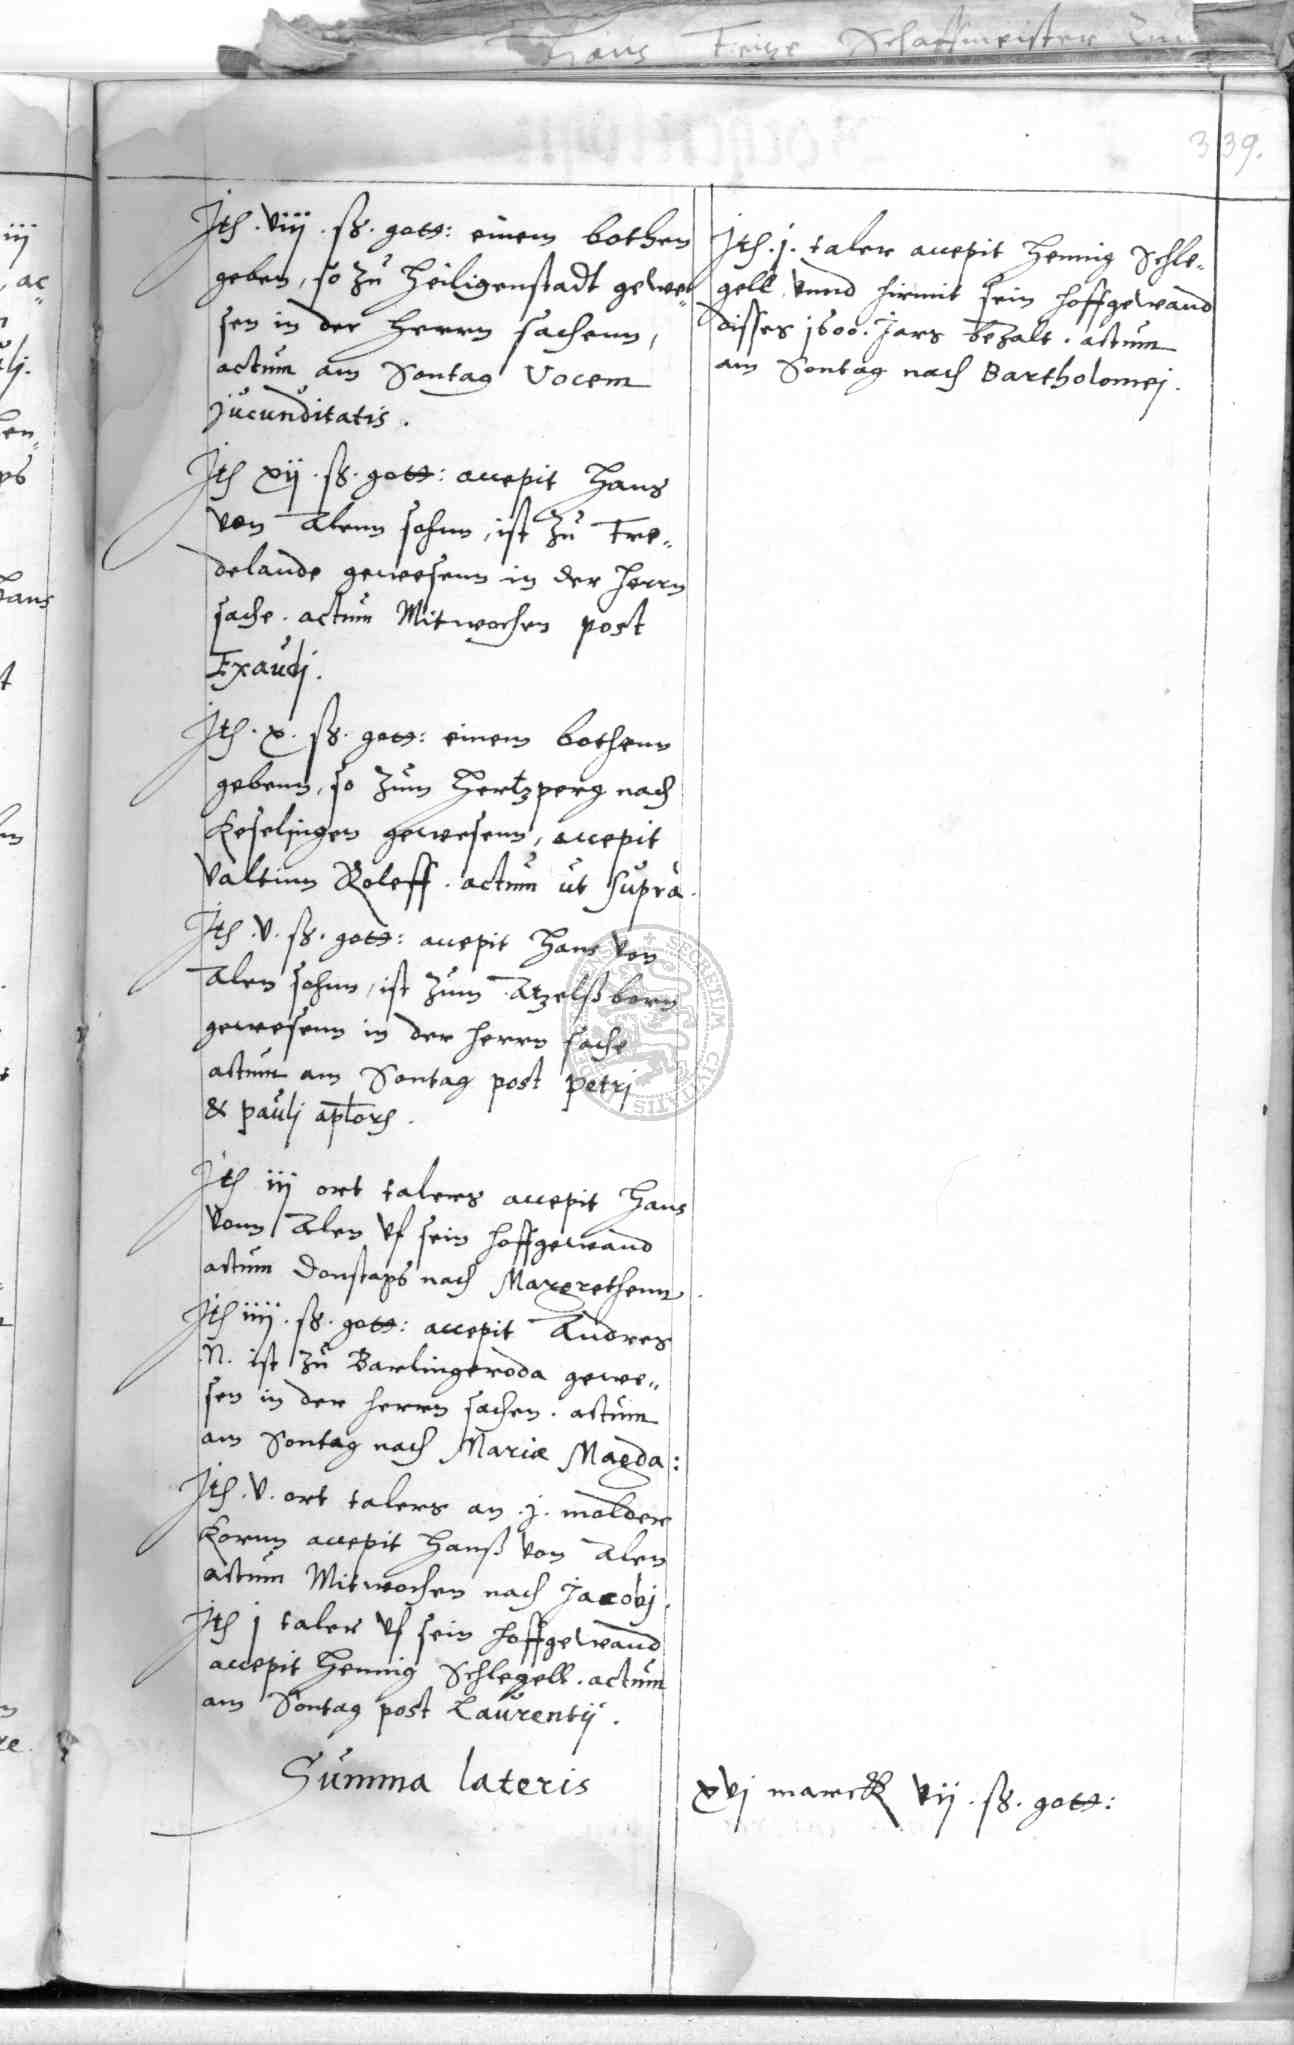 Hans Feige Schaffmeister
339.
Jtē. viij. ß. gott: einem bothen
geben, so zu Heiligenstadt gewe„
sen in der Herrn sachenn,
actum am Sontag Vocem
Jucunditatis.
Jtē xij. ß. gott: accepit Hans
von Alenn sohnn, ist zu Tre„
delande gewesenn in der Herrn
sache. actum Mitwochen post
Exaudj.
Jtē. x. ß. gott: einem bothenn
gebenn, so zum Hertzperg nach
Keselingen gewesenn, accepit
Valtinn Roleff. actum ut supra.
Jtē. v. ß. gott: accepit Hans von
Alen sohnn, ist zum Atzelßborn
gewesenn in der Herrn sache
actum am Sontag post Petrj
& Paulj aptorē.
Jtē iij ort talers accepit Hans
vonn Alen vf sein hoffgewand
actum Donstags nach Margrethenn.
Jtē iiij. ß. gott: accepit Andres
N. ist zu Barlingeroda gewe„
sen in der Herrn sachen. actum
am Sontag nach Mariæ Magda:
Jtē. v. ort talers an .j. molder
Kornn accepit Hanß von Alen
actum Mitwochen nach Jacobj.
Jtē j taler vf sein hoffgewand
accepit Hennig Schlegell. actum
am Sontag post Laurentij.
Summa lateris
Jtē. j. taler accepit Hennig Schle„
gell, vnnd hirmit sein hoffgewand
disses 1600. Jars bezalt. actum
am Sontag nach Bartholomej.
xvj marck vij. ß. gott:
SECRETUM CIVITATIS